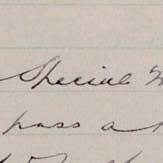 Special
pass a